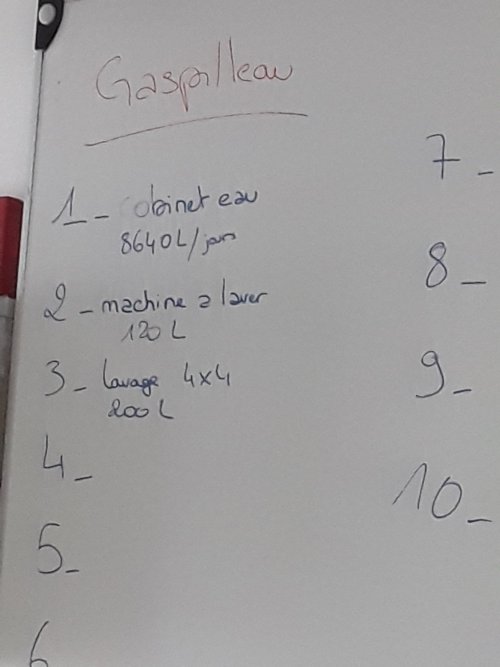 Gaspilleau
1_ Robinet eau
8640L/jour
2_ machine a laver
120 L
3_ lavage 4x4
200 L
4_
5_
6
7_
8_
9_
10_